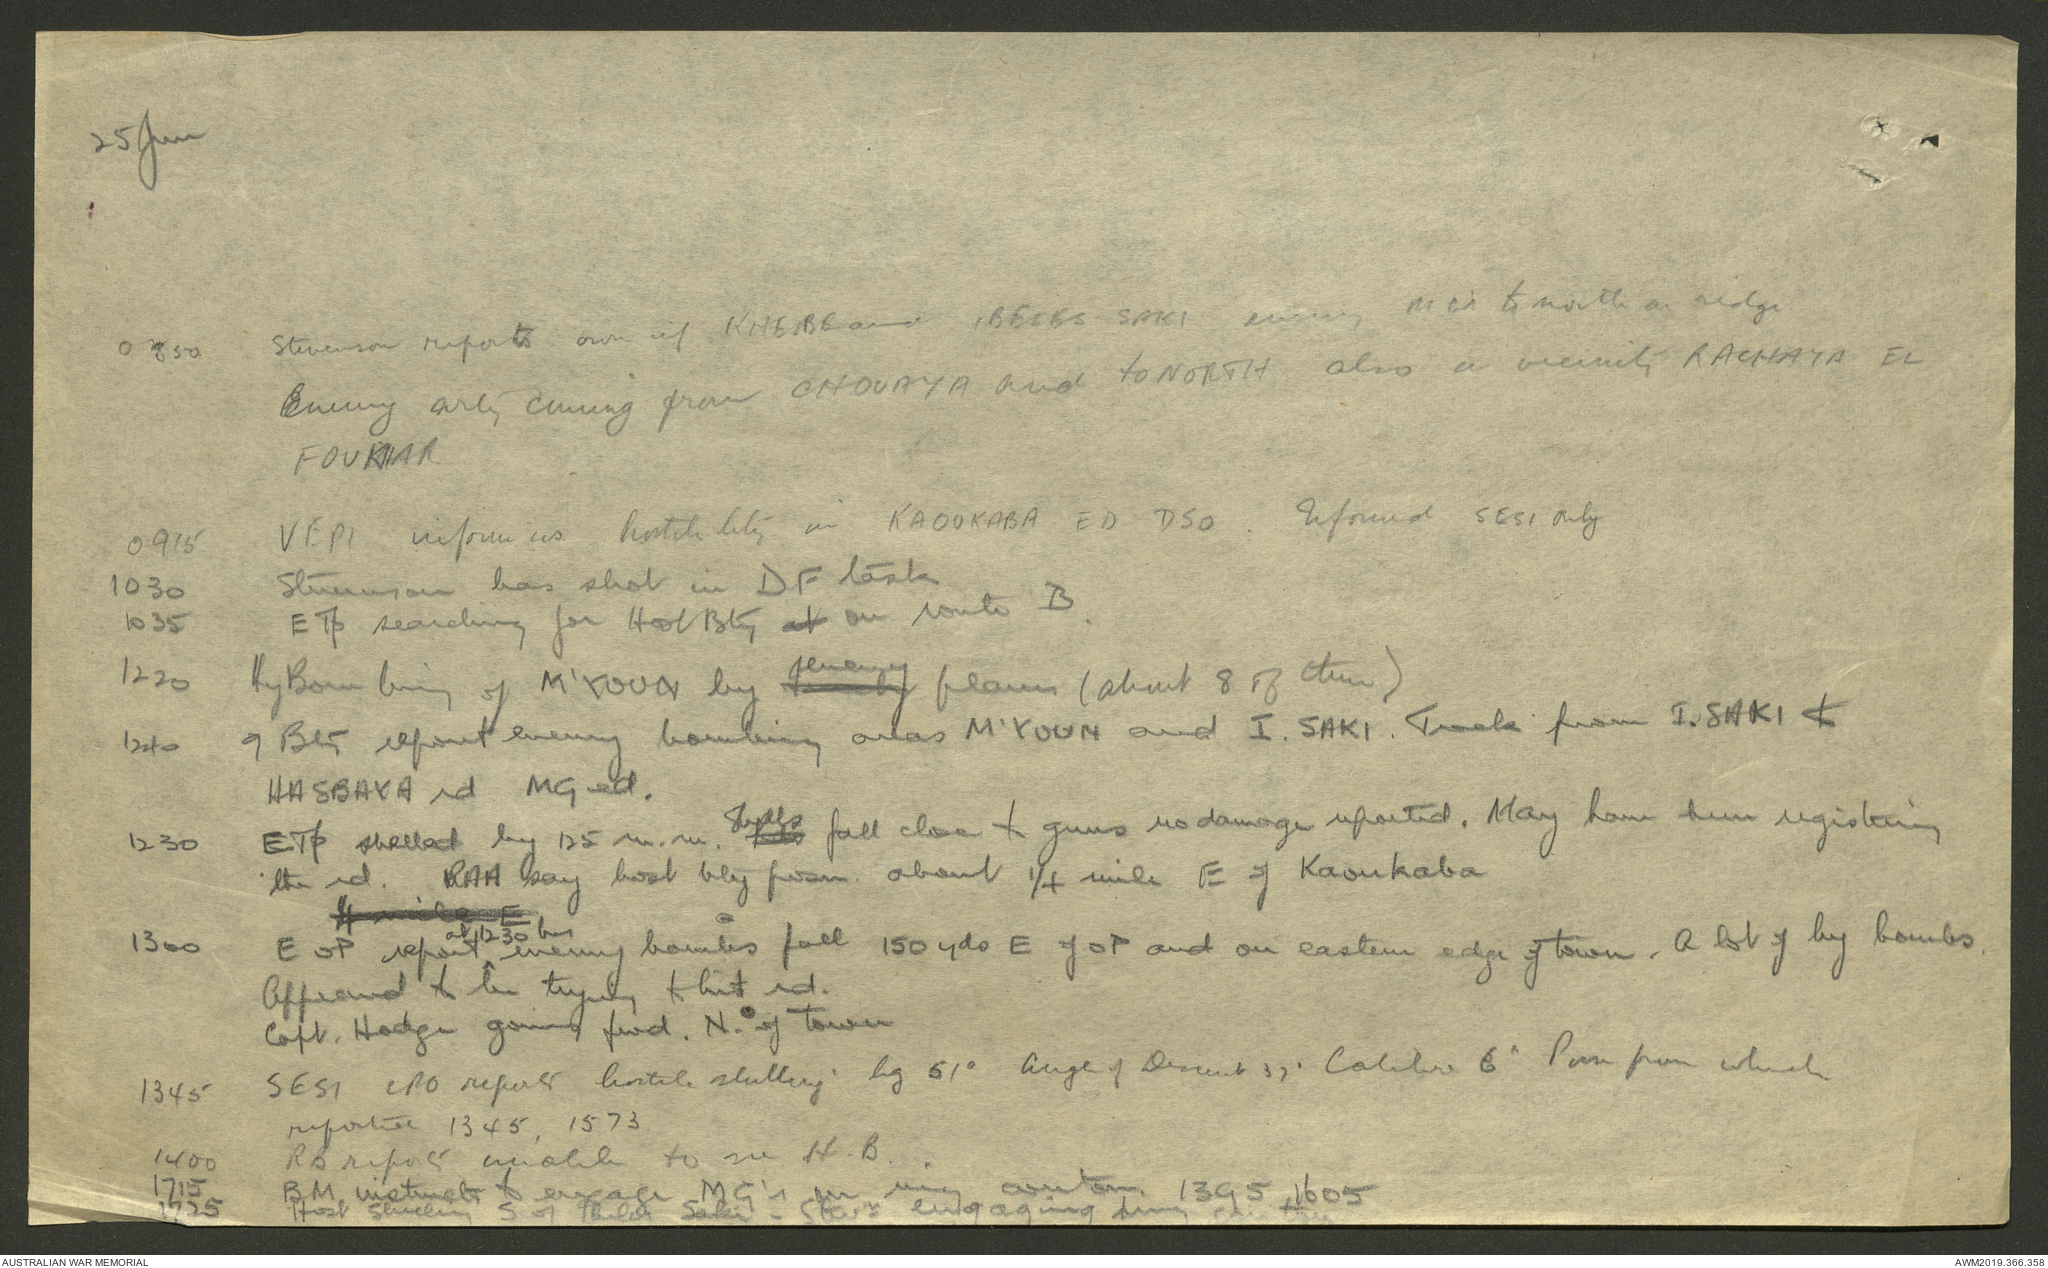 25 Jun
0850 Stevenson reports own inf KHEIBE and IBELES SAKI enemy MGs to north on ridge
Enemy arty coming from CHOUAYA and to NORTH also in vicinity RACHAYA EL
FOUKHAR
0915 VEPI inform us hostile bty in KAOUKABA ED DSO. Informed SESI only
1030 Stevenson has shot in DF task
1035 E Tp searching for Host Bty at on route B.
1220 Hy Bombing of M'YOUN by enemy planes (about 8 of them)
1240 9 Bty report enemy bombing areas M'YOUN and I. SAKI. Track from I. SAKI to
HASBAYA rd MG ed.
1230 E Tp shelled by 125 m.m. Shells fall close to guns no damage reported. May have been registering
the rd. RAA say host bty posn. about 1/4 mile E of Kaoukaba
1/4 mile E
at 1230 hrs
1300 E OP report enemy bombs fall 150 yds E of OP and on eastern edge of town. A lot of hy bombs.
Appeared to be trying to hit rd.
Capt. Hodge going fwd. N. of town
1345 SESI CPO report hostile shelling bg 51° Angle of Descent 37° Calibre 6" Posn from which
reported 1345, 1573
1400 RB report unable to see H.B.
1715 BM instructs to engage MG's in 1395 1605
1725 Host shelling S of Saki - engaging
AUSTRALIAN WAR MEMORIAL
AWM2019.366.358